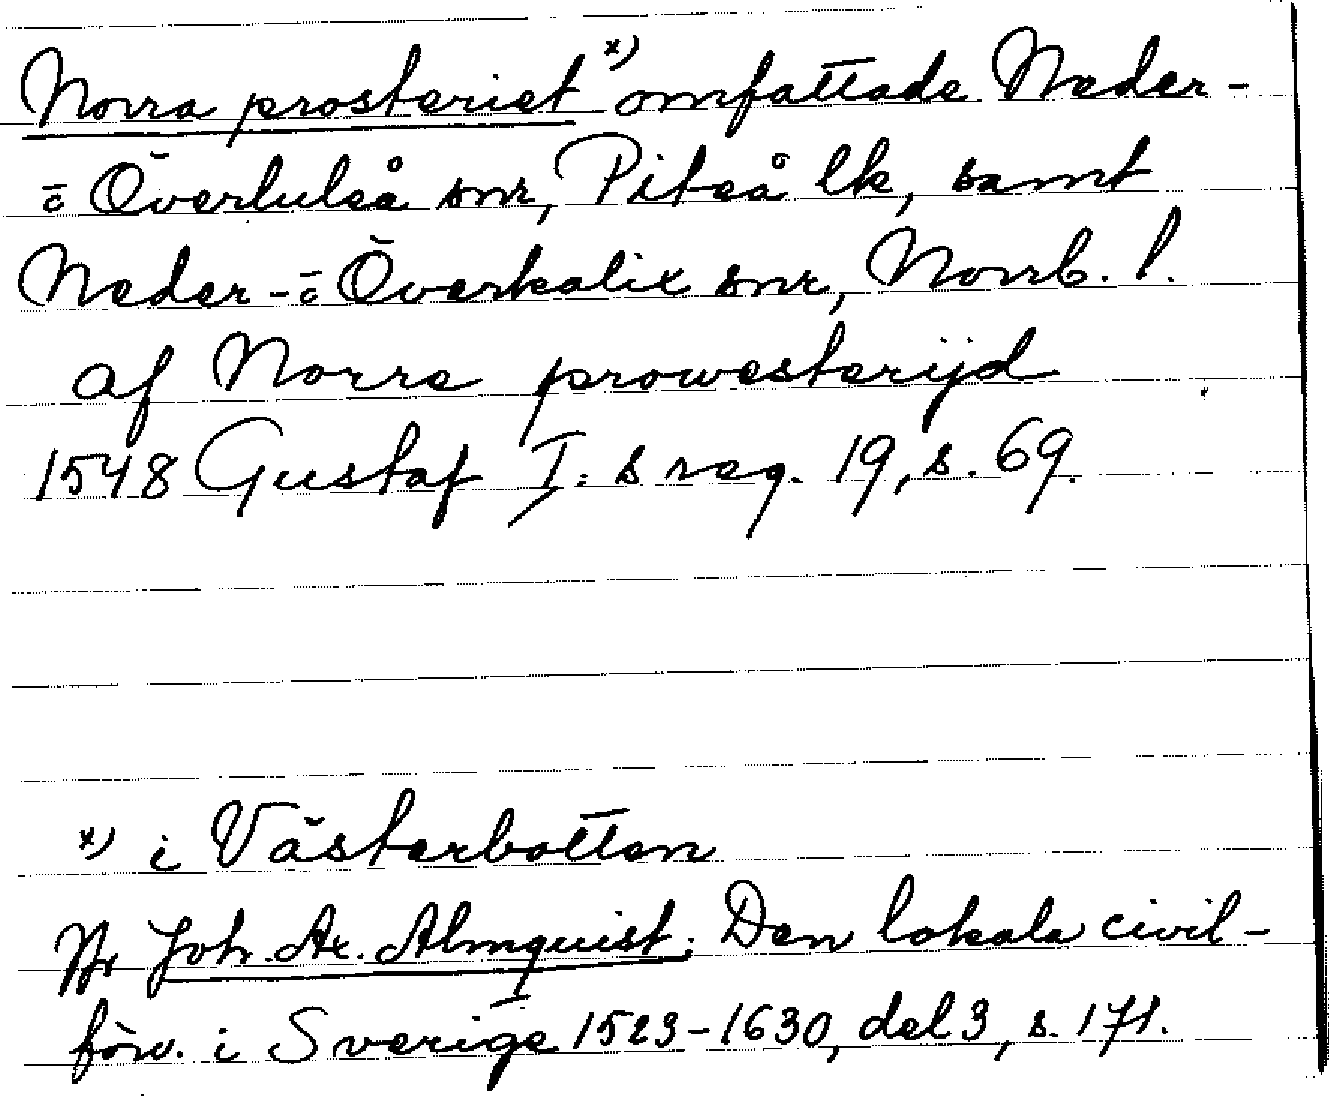 Norra prosteriet x) omfattade Neder-
= Överluleå snr, Piteå lk, samt
Neder- = Överkalix snr, Norrb. l.
af Norre prowesterijd
1548 Gustaf I:s reg. 19, s. 69.
x) i Västerbotten
Joh. Ax. Almquist: Den lokala civil-
förv. i Sverige 1523-1630, del 3, s. 171.